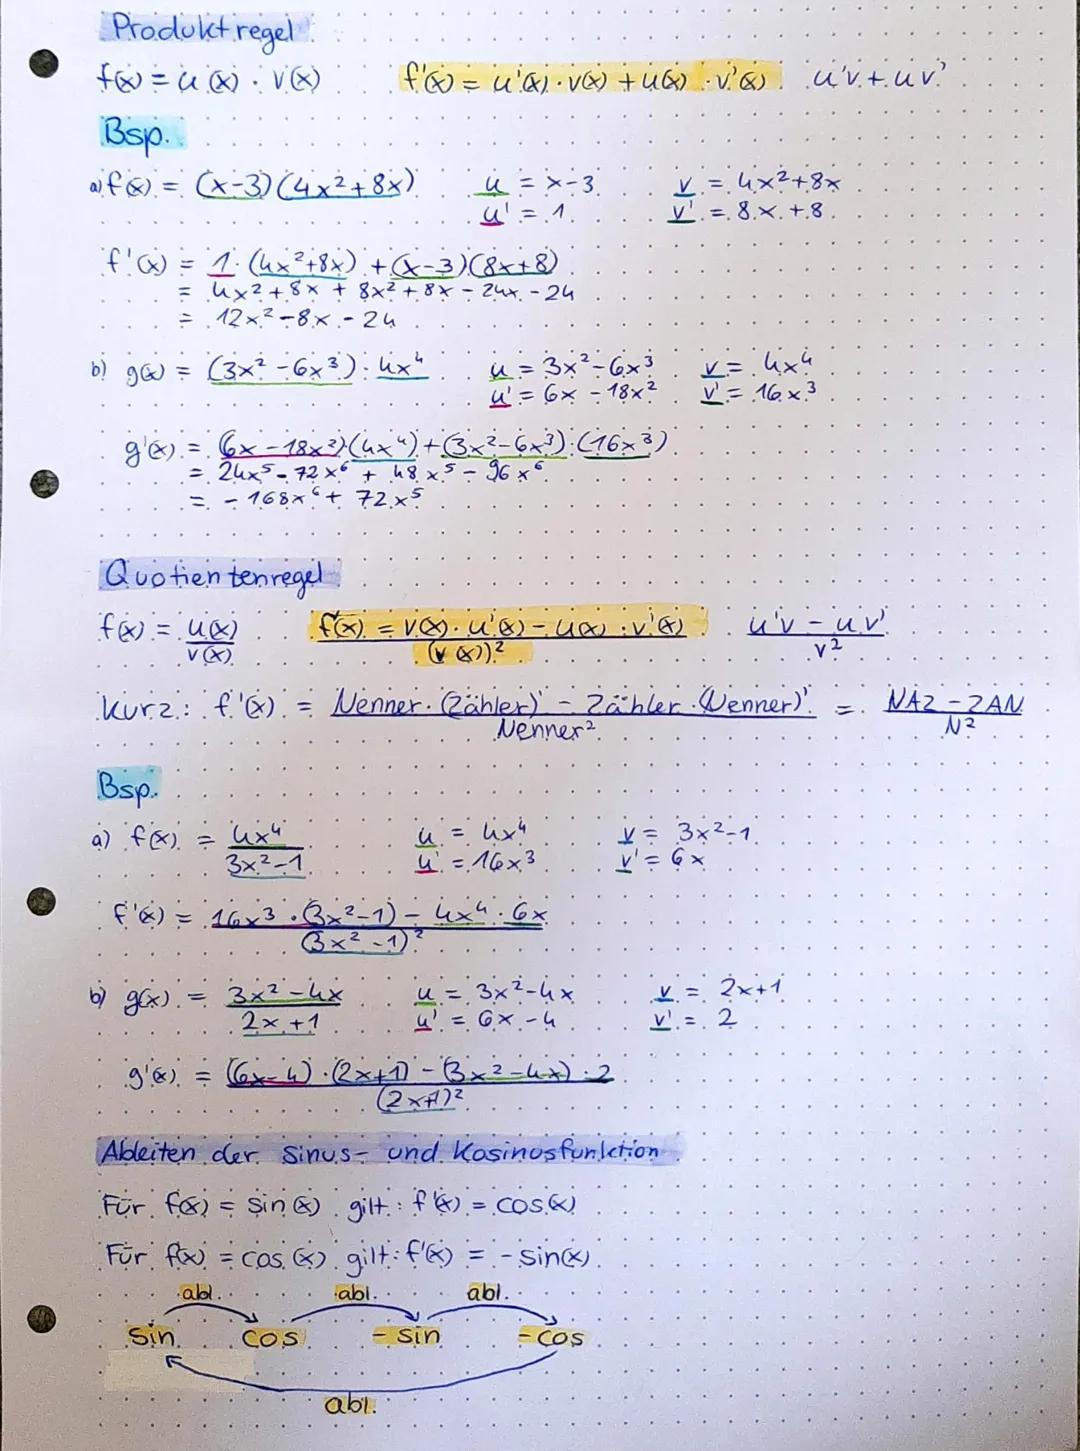 Produktregel
f(x) = u(x) · v(x) f'(x) = u'(x) · v(x) + u(x) · v'(x) u'v + uv'
Bsp.
a) f(x) = (x-3)(4x²+8x) u = x-3 v = 4x²+8x
u' = 1 v' = 8x + 8
f'(x) = 1 · (4x²+8x) + (x-3)(8x+8)
= 4x² + 8x + 8x² + 8x - 24x - 24
= 12x² - 8x - 24
b) g(x) = (3x² - 6x³) · 4x⁴ u = 3x² - 6x³ v = 4x⁴
u' = 6x - 18x² v' = 16x³
g'(x) = (6x - 18x²)(4x⁴) + (3x² - 6x³) · (16x³)
= 24x⁵ - 72x⁶ + 48x⁵ - 96x⁶
= - 168x⁶ + 72x⁵
Quotientenregel
f(x) = u(x)/v(x) f'(x) = v(x) · u'(x) - u(x) · v'(x)/(v(x))² u'v - uv'/v²
Kurz: f'(x) = Nenner · (Zähler)' - Zähler · (Nenner)'/Nenner² = NAZ - ZAN/N²
Bsp.
a) f(x) = 4x⁴/3x²-1 u = 4x⁴ v = 3x²-1
u' = 16x³ v' = 6x
f'(x) = 16x³ · (3x²-1) - 4x⁴ · 6x/(3x²-1)²
b) g(x) = 3x² - 4x/2x+1 u = 3x² - 4x v = 2x+1
u' = 6x - 4 v' = 2
g'(x) = (6x-4) · (2x+1) - (3x²-4x) · 2/(2x+1)²
Ableiten der Sinus- und Kosinusfunktion
Für f(x) = sin(x) gilt: f'(x) = cos(x)
Für f(x) = cos(x) gilt: f'(x) = - sin(x)
abl. abl. abl.
sin cos - sin - cos
abl.